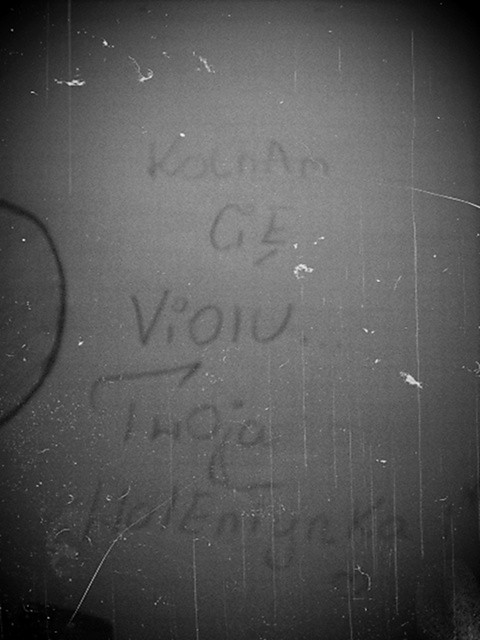 KOCHAM
CIĘ
ViOlU...
TwOja
WalEnTynKa